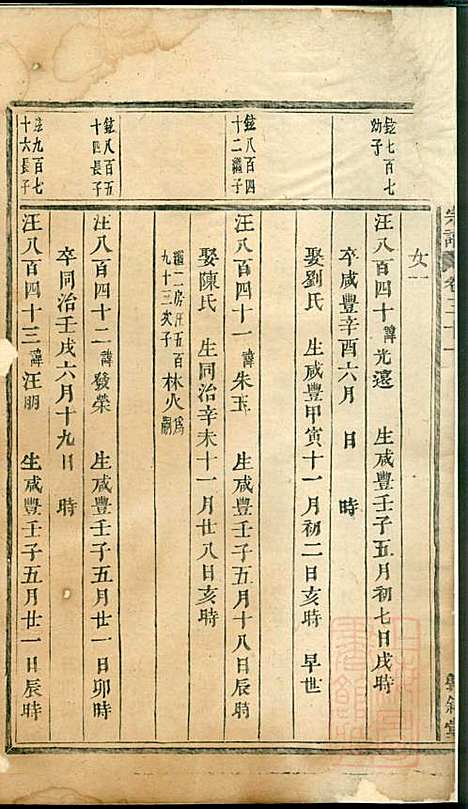 宗譜 卷二十一
女一
鉉七百七
幼子
汪八百四十 諱光遠 生咸豐壬子五月初七日戌時
卒咸豐辛酉六月 日 時
娶劉氏 生咸豐甲寅十一月初二日亥時 早世
鉉八百四
十二繼子
汪八百四十一 諱朱玉 生咸豐壬子五月十八日辰時
娶陳氏 生同治辛未十一月廿八日亥時
繼二房汪五百
九十三次子
林火
為
嗣
鉉八百五
十四長子
汪八百四十二 諱發榮 生咸豐壬子五月廿一日卯時
卒同治壬戌六月十九日 時
鉉九百七
十六長子
汪八百四十三 諱汪朋 生咸豐壬子五月廿一日辰時